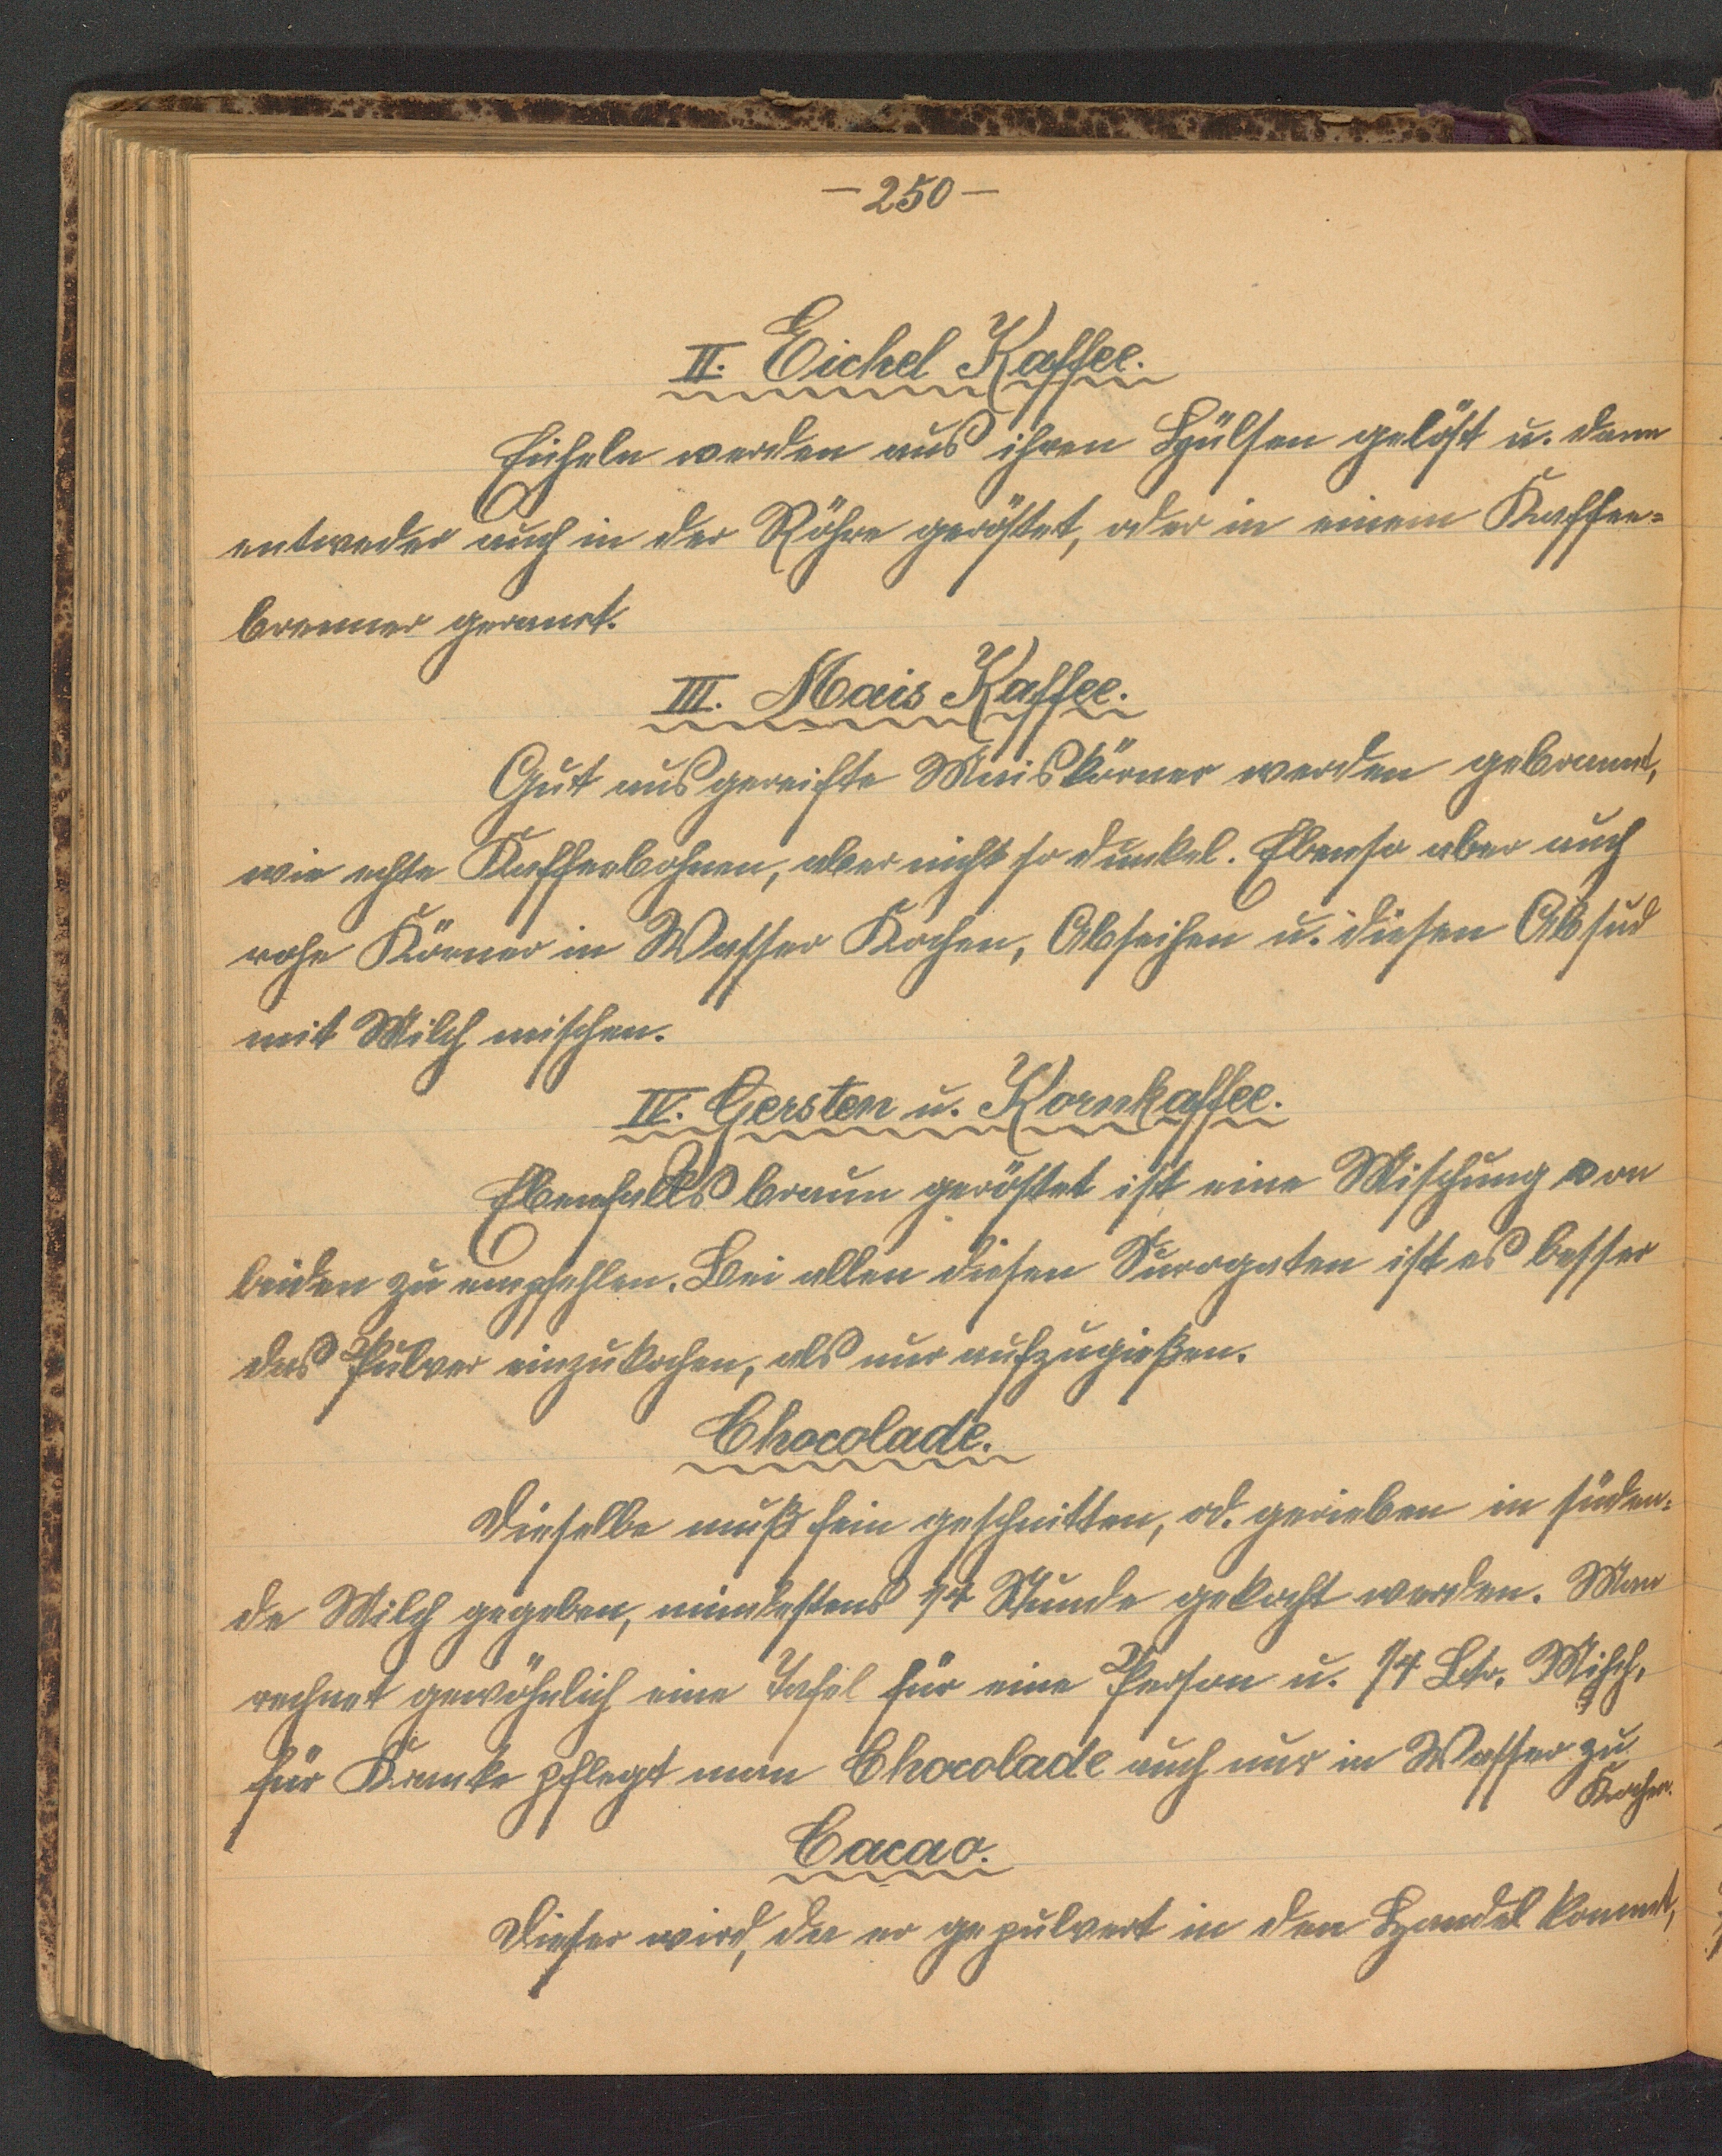 – 250 –
II. Eichel Kaffee.
Eicheln werden aus ihren Hülsen gelöst u. dann
entweder auch in der Röhre geröstet, oder in einem Kaffee=
brenner
III. Mais Kaffee.
Gut ausgereifte Maiskörner werden gebrannt,
wie echte Kaffeebohnen, aber nicht so dunkel. Ebenso aber auch
rohe Körner in Wasser Kochen, Abseihen u. diesen Absud
mit Milch mischen.
IV. Gersten u. Kornkaffee.
Ebenfalls braun geröstet ist eine Mischung von
beiden zu empfehlen. Bei allen diesen Surogaten ist es besser
das Pulver einzukochen, als nur aufzugießen.
Chocolade.
Dieselbe muß fein geschnitten, od. gerieben in süden=
de Milch gegeben, mindestens 1/4 Stunde gekocht werden. Man
rechnet gewöhnlich eine Tafel für eine Person u. 1/4 Ltr. Milch,
für Kranke pflegt man Chocolade auch nur in Wasser zu
Kochen.
Cacao.
Dieser wird, da er gepulvert in den Handel kommt,